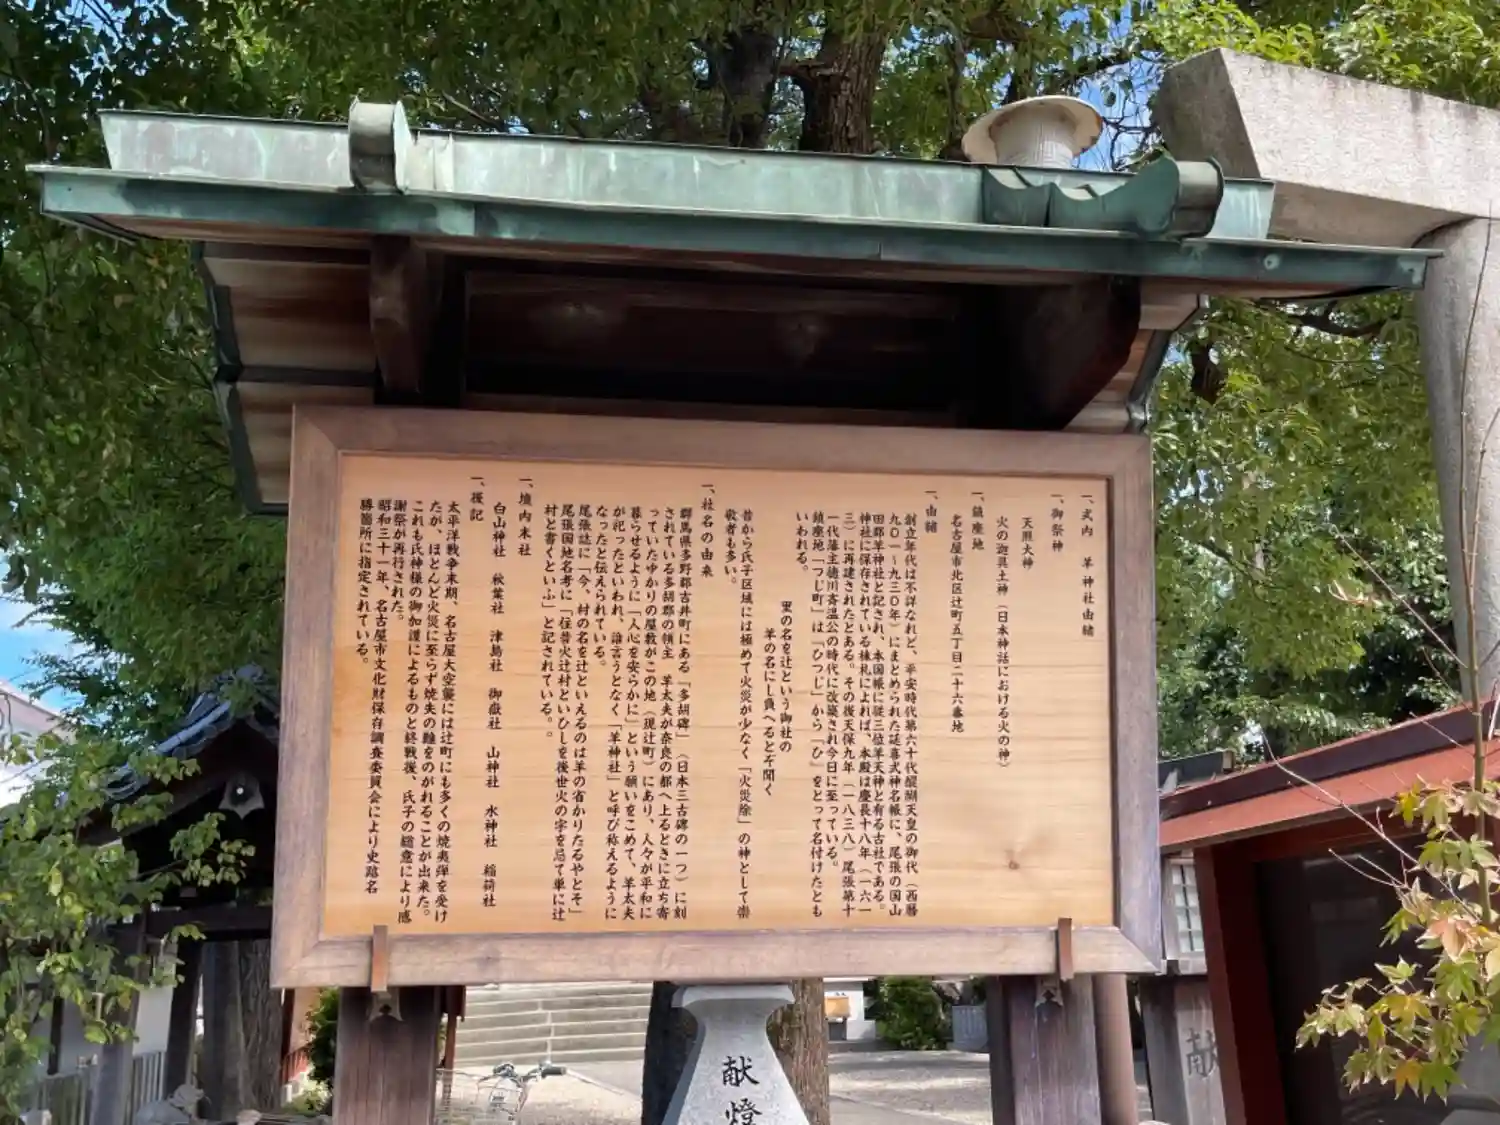 一、式内 羊神社由緒
一、御祭神
天照大神
火の迦具土神（日本神話における火の神）
一、鎮座地
名古屋市北区辻町五丁目二十六番地
一、由緒
創立年代は不詳なれど、平安時代第六十代醍醐天皇の御代（西暦
九〇一～九三〇年）にまとめられた延喜式神名帳に、尾張の国山
田郡羊神社と記され、本国帳に従三位羊天神と有る古社である。
神社に保存されている棟札によれば、本殿は慶長十八年（一六一
三）に再建されたとある。その後天保九年（一八三八）尾張第十
一代藩主徳川斉温公の時代に改築され今日に至っている。
鎮座地「つじ町」は「ひつじ」から「ひ」をとって名付けたとも
いわれる。
里の名を辻という御社の
羊の名にし負へるとぞ聞く
昔から氏子区域には極めて火災が少なく「火災除」の神として崇
敬者も多い。
一、社名の由来
群馬県多野郡吉井町にある「多胡碑」（日本三古碑の一つ）に刻
されている多胡郡の領主 羊太夫が奈良の都へ上るときに立ち寄
っていたゆかりの屋敷がこの地（現辻町）にあり、人々が平和に
暮らせるように「人心を安らかに」という願いをこめて、羊太夫
が祀ったといわれ、誰言うとなく「羊神社」と呼び称えるように
なったと伝えられている。
尾張誌に「今、村の名を辻といえるのは羊の省かりたるやとそ」
尾張国地名考に「往昔火辻村といひしを後世火の字を忌て単に辻
村と書くといふ」と記されている。
一、境内末社
白山神社 秋葉社 津島社 御嶽社 山神社 水神社 稲荷社
一、後記
太平洋戦争末期、名古屋大空襲には辻町にも多くの焼夷弾を受け
たが、ほとんど火災に至らず焼失の難をのがれることが出来た。
これも氏神様の御加護によるものと終戦後、氏子の総意により感
謝祭が再行された。
昭和三十一年、名古屋市文化財保存調査委員会により史蹟名
勝箇所に指定されている。
献燈
献